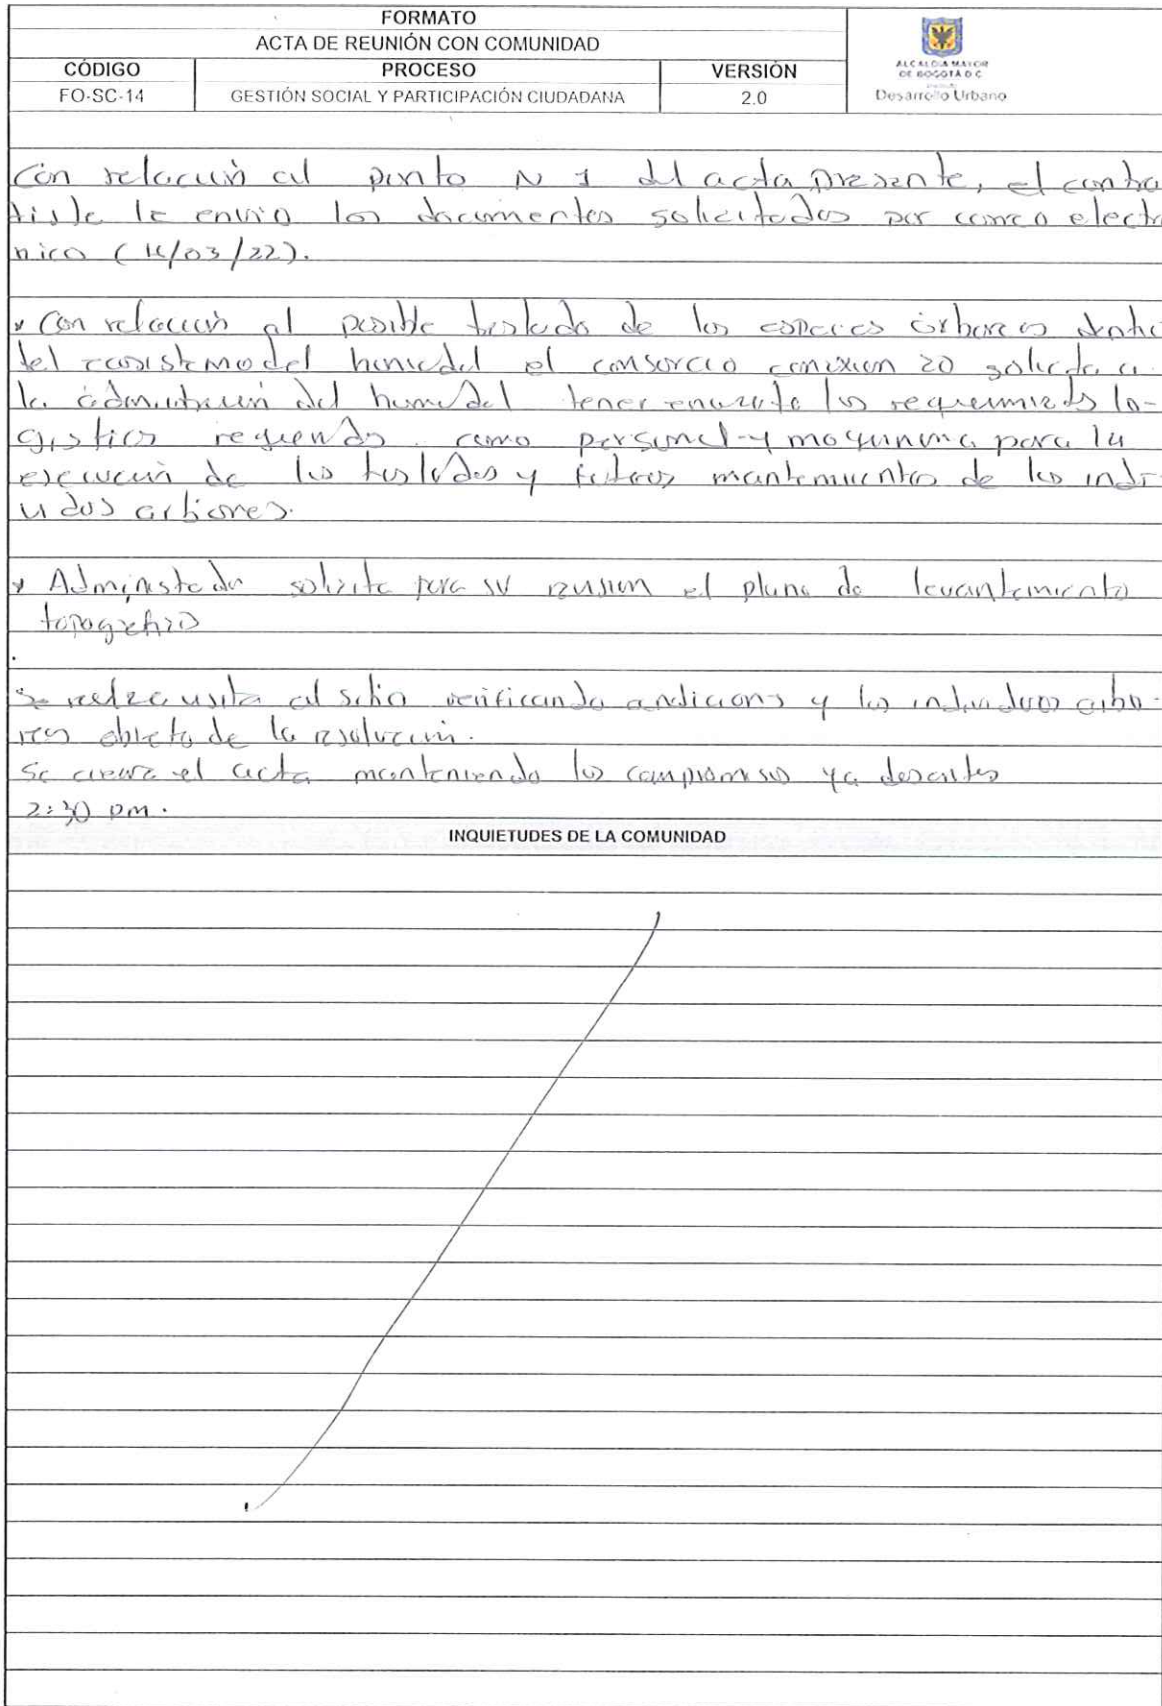 FORMATO
ACTA DE REUNIÓN CON COMUNIDAD
CÓDIGO PROCESO VERSIÓN
FO-SC-14 GESTIÓN SOCIAL Y PARTICIPACIÓN CIUDADANA 2.0
ALCALDÍA MAYOR
DE BOGOTÁ D.C.
Desarrollo Urbano
Con relación al punto N 1 del acta presente, el contra
tista le envio los documentos solicitados por correo electro
nico ( /03/22).
* Con relación al posible traslado de los especies arboreos dentro
del ecosistema del humedal el consorcio conexion 20 solicita a
la administración del humedal tener encuenta los requerimientos lo-
gisticos requeridos como personal y maquinaria para la
ejecución de los traslados y futuros mantenimientos de los indi-
viduos arbóreos.
* Administrador solicita para su revision el plano de levantamiento
topografico
Se realiza visita al sitio verificando condiciones y los individuos arbo-
reos objeto de la resolución.
Se cierra el acta manteniendo los compromisos ya descritos
2:30 pm.
INQUIETUDES DE LA COMUNIDAD